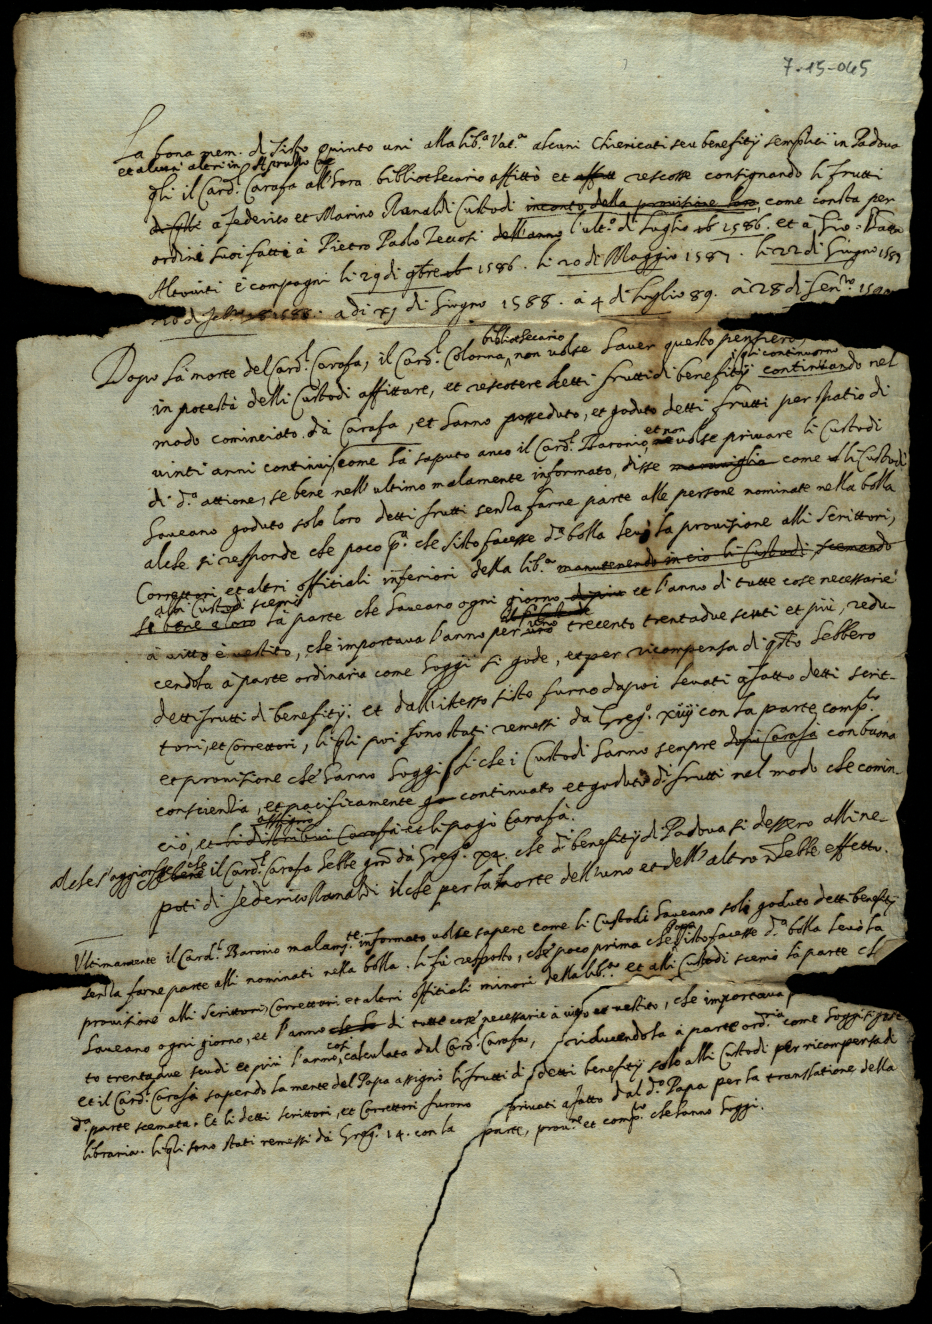 7-15-045
La bona mem. di Sisto Quinto unì alla lib.ª Vat.ª alcuni chiericati seu benefitij semplici in Padova
et alcuni altri in
q.li il Card.l Carafa all'hora bibliothecario affittò et rescosse consignando li frutti
a Federico et Marino Ranaldi Custodi in conto della provisione loro, come consta per
ordini suoi fatti à Pietro Paolo Zecosi l'ult.º di Luglio 1586. et à Gio: Batta
Altoviti è compagni li 29 di 9bre 1586. li 20 di Maggio 1587. li 22 di Giugno 1587
1588. a di xj di Giugno 1588. à 4 di Luglio 89. à 28 di Gen.ro
bibliothecario
Dopo la morte del Card.l Carafa, il Card.l Colonna, non volse haver questo pensiero,
in potestà delli Custodi affittare, et rescotere detti frutti di benefitij continuando nel
modo cominciato da Carafa, et hanno posseduto, et goduto detti frutti per spatio di
vinti anni continui, come hà saputo anco il Card.l Baronio, et non volse privare li Custodi
di d.ª attione, se bene nell'ultimo malamente informato, disse maraviglia come li Custodi
haveano goduto solo loro detti frutti senza farne parte alle persone nominate nella bolla
al che si risponde che poco p.ª che Sisto facesse d.ª bolla levò la provisione alli Scrittori,
Correttori, et altri offitiali inferiori della lib.ª manutenendo in ciò li Custodi scemando
alli Custodi scemò
se bene a loro la parte che haveano ogni giorno et l'anno di tutte cose necessarie
à vitto è vestito, che importava l'anno per uno trecento trentadue scuti et più, redu-
cendola à parte ordinaria come hoggi si gode, et per ricompensa di q.sto hebbero
detti frutti di benefitij. et dall'istesso Sisto furno dapoi levati afatto detti scrit-
tori, et correttori, li q.li poi sono stati remessi da Greg.º xiiij con la parte, comp.ta
et provisione che hanno hoggi si che i Custodi hanno sempre dopò Carafa con buona
conscienza, et pacificamente continuato et goduto d.i frutti nel modo che comin-
assignò
ciò, et li distribuì Carafa et li pagò Carafa.
al che s'aggionge che il Card.l Carafa hebbe da Greg.º che d.i benefitij di Padova si dessero alli ne-
poti di Federico Ranaldi il che per la morte dell'uno et dell'altro n hebbe effetto.
Ultimamente il Card.l Baronio malam.te informato volse sapere come li Custodi haveano soli goduto detti benefitij
Papa
senza farne parte alli nominati nella bolla. li fù resposto, che poco prima che Sisto facesse d.ª bolla levò la
provisione alli Scrittori, Correttori et altri offitiali minori della lib.ª et alli Custodi scemò la parte che
haveano ogni giorno, et l'anno di tutte cose necessarie à vitto et vestito, che importava,
così
to trentadue scudi et più l'anno, calculata dal Card.l Carafa, riducendola à parte ord.ria come hoggi si gode
et il Card.l Carafa sapendo la mente del Papa assignò li frutti di detti benefitij solo alli Custodi per ricompensa di
d.ª parte scemata. Et li detti scrittori, et Correttori furono privati afatto dal d.º Papa per la translatione della
libraria. li q.li sono stati remessi da Greg.º 14. con la parte, prov.ne et comp.ta che hanno hoggi.